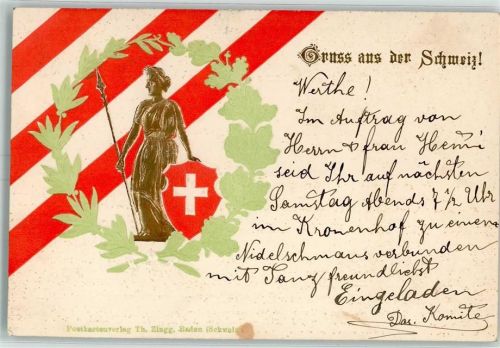 Gruss aus der Schweiz!
Werthe!
Im Auftrag von
Herrn & frau Hemi
seid Ihr auf nächsten
Samstag Abends 7 ½ Uhr
im Kronenhof zu einem
Nidelschmaus verbunden
mit Tanz freundlichst
Eingeladen
Das. Komite
Postkartenverlag Th. Zingg, Baden (Schweiz)